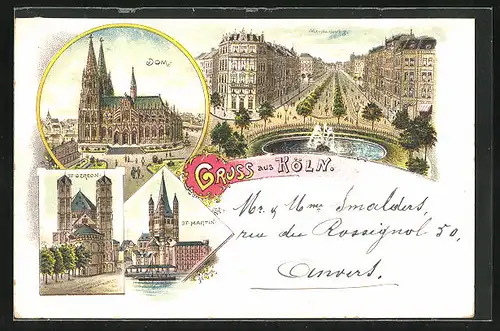 DOM.
GRUSS AUS KÖLN.
ST GEREON
ST MARTIN
Mr. & Mme Smalders,
rue du Rossignol 50,
Anvers.